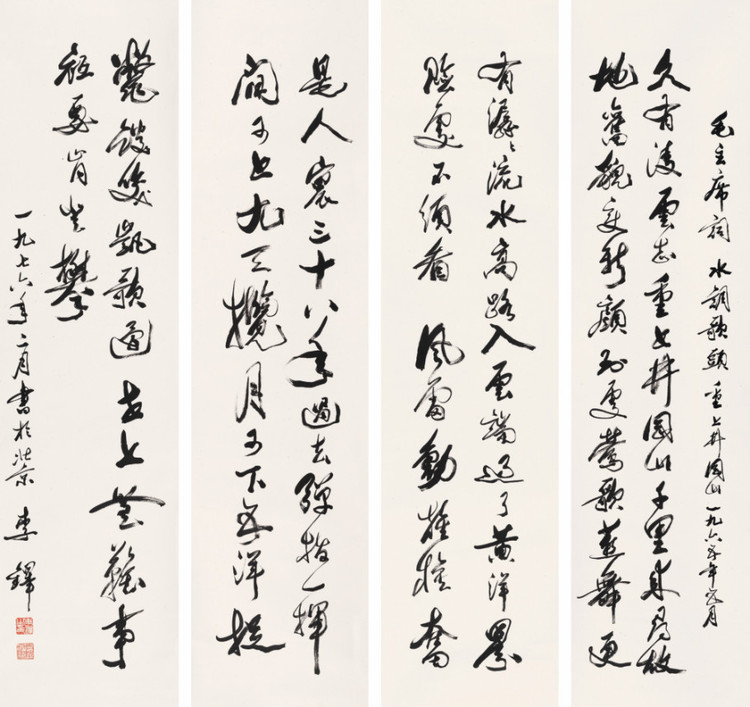 毛主席詞 水調歌頭 重上井岡山 一九六五年五月
久有凌雲志重上井岡山千里來尋故
地舊貌變新顏到處鶯歌燕舞更
有潺々流水高路入雲端過了黃洋界
險處不須看 風雷動旌旗奮
是人寰三十八年過去彈指一揮
間可上九天攬月可下五洋捉
鱉談笑凱歌還世上無難事
祗要肯登攀
一九七六年二月書於北京 李鐸